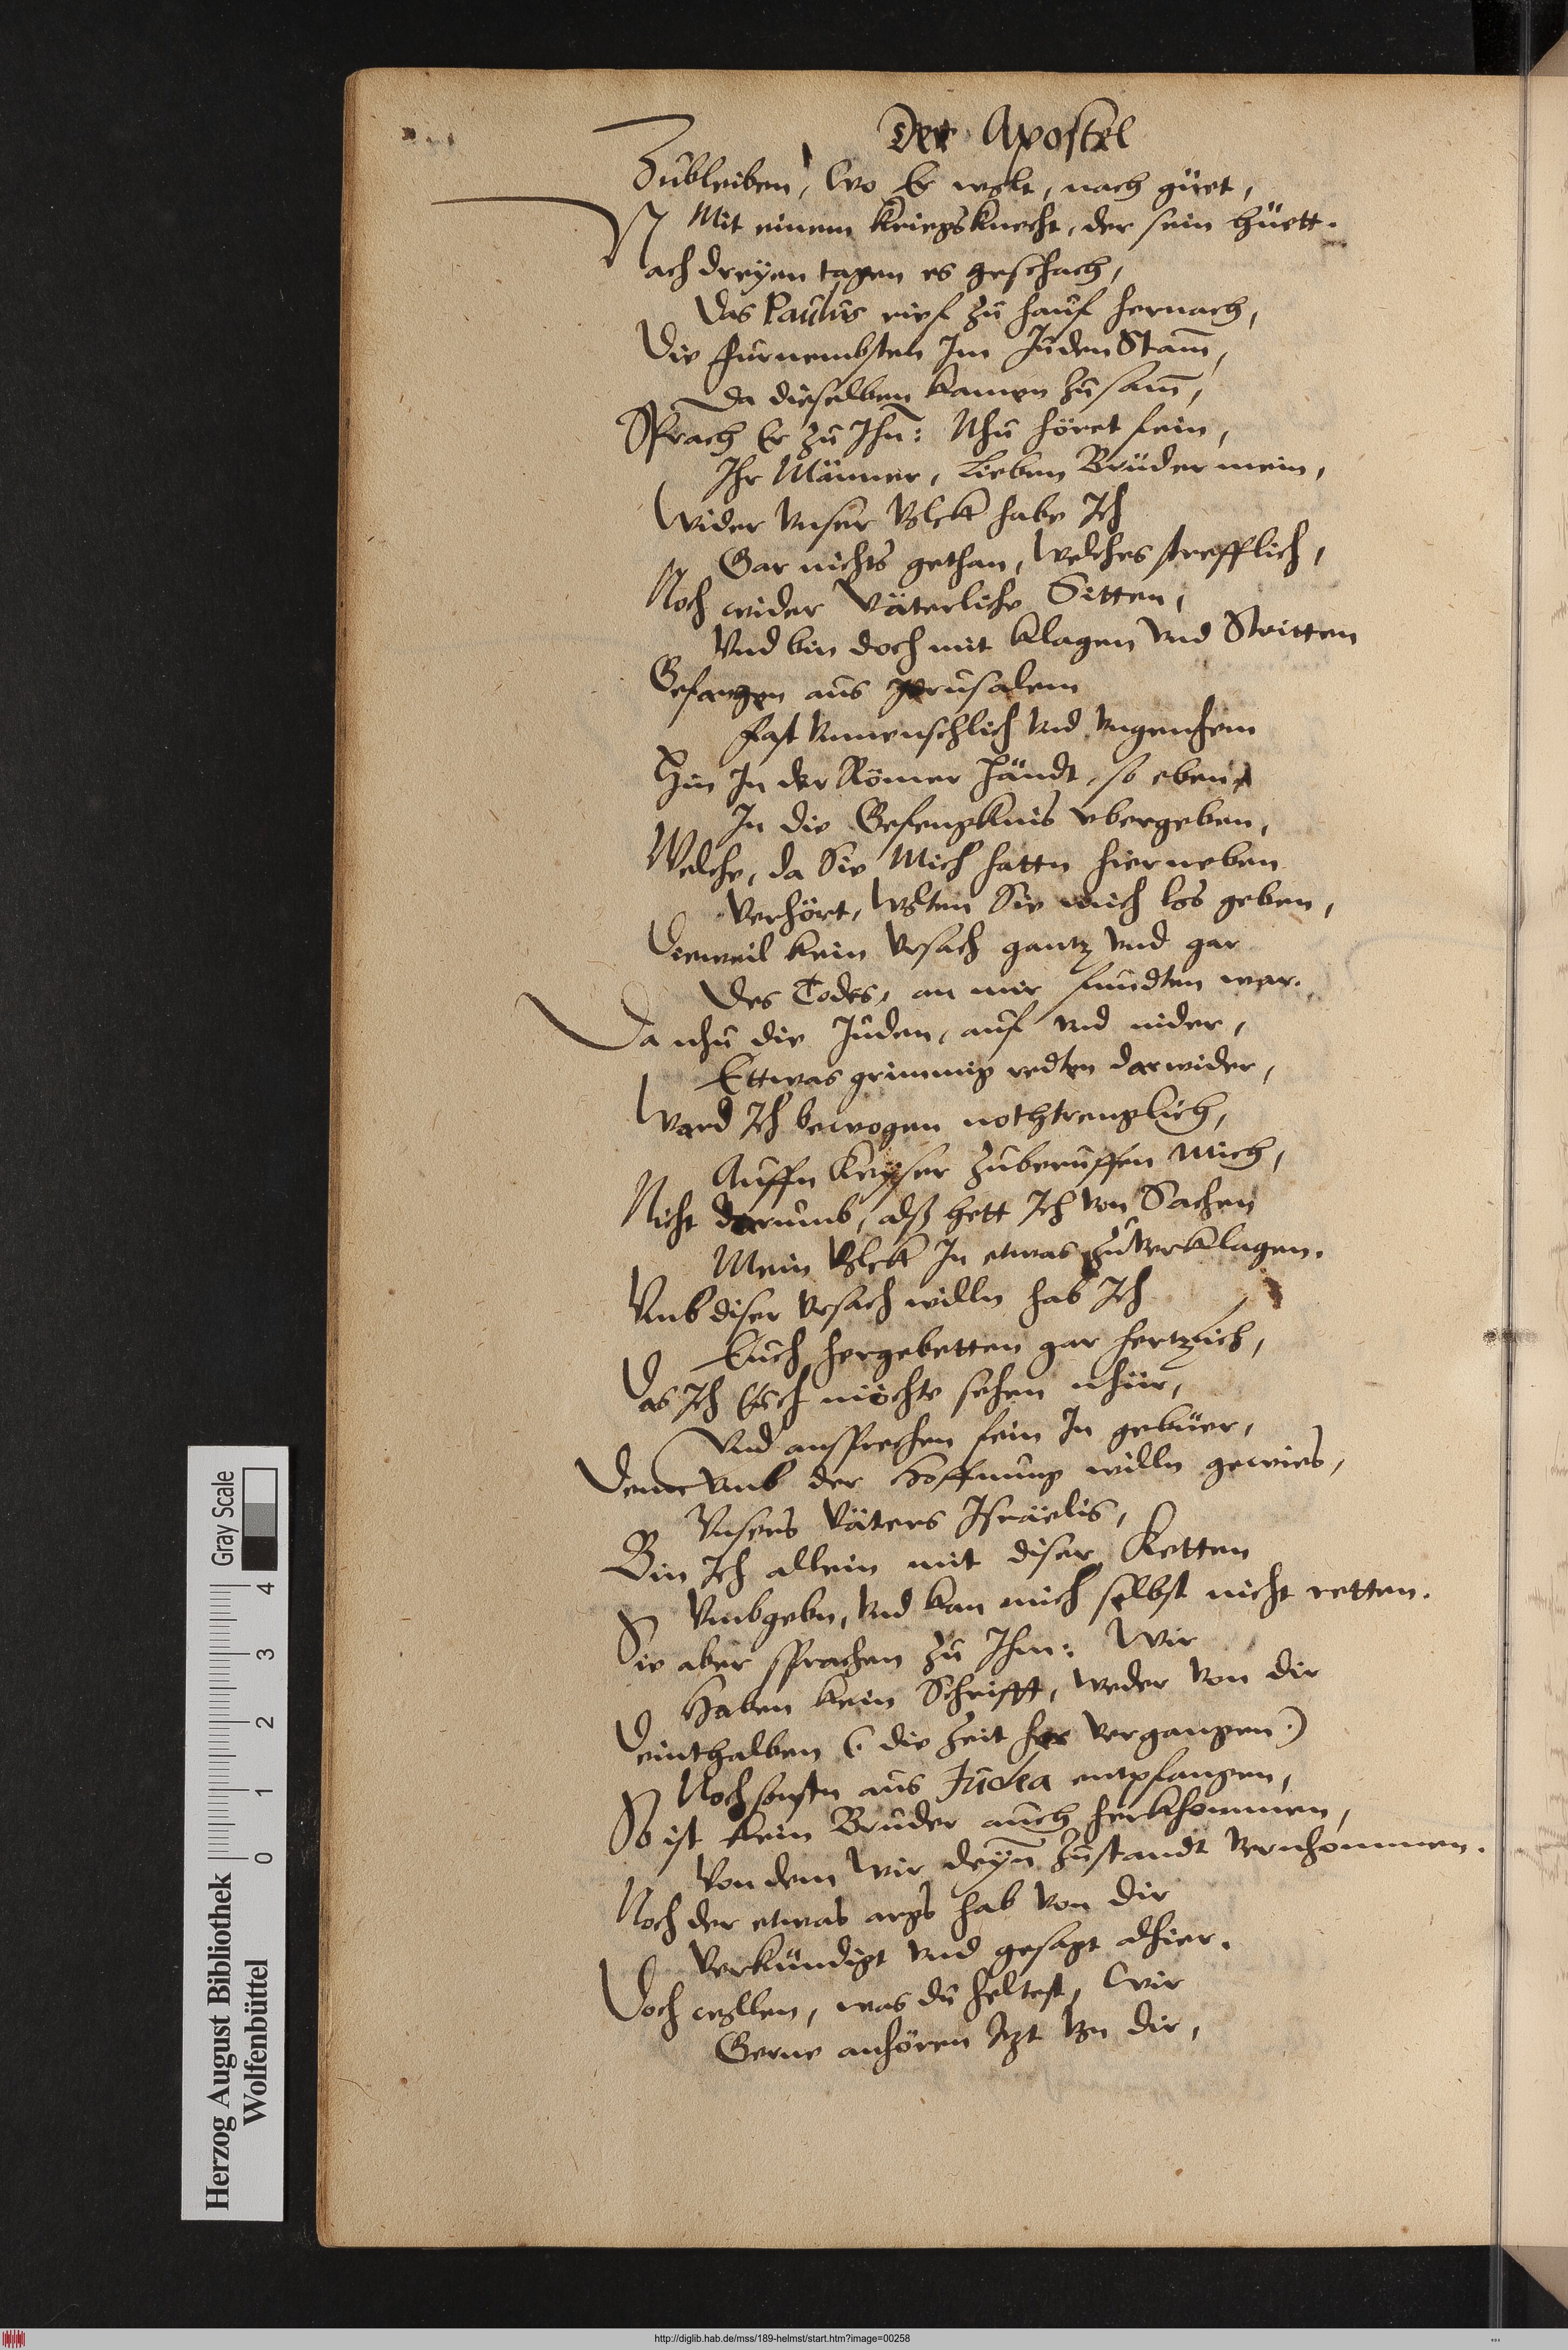 Der Apostel
Zubleiben, Wo Er wolt, nach güet,
Mit einem Kriegsknecht, der sein hüett.
Nach dreyen tagen es geschach,
Das Paulus rief zu hauf hernach,
Die fürnembsten Im Juden Stam̄,
Da dieselben kamen zusam̄,
Sprach Er zu Ihn̄: Nhu höret fein,
Ihr Männer, Lieben Brüder mein,
Wider Unser Volck habe Ich
Gar nichts gethan, Welches strefflich,
Noch wider Väterliche Sitten,
Und bin doch mit klagen Und Stritten
Gefangen aus Jerusalem
fast Unmenschlich Und Ungenhem
Hin In der Römer händt, so eben
In die Gefengknis ubergeben,
Welche, da Sie Mich hattn hierneben
Verhört, Wolten Sie mich los geben,
Dieweil kein Ursach gantz Und gar
Des Todes, an mir fundten war.
Da nhu die Juden, auf Und nider,
Ettwas grimmig redten darwider,
Ward Ich bewogen nothtrenglich,
Auffn Keyser zuberuffen Mich,
Nicht darumb, alß hett Ich Von Sachen
Mein Volck In etwas zuverklagen.
Umb diser Ursach willn hab Ich
Euch hergebetten gar hertzlich,
Das Ich Euch möchte sehen nhür,
Und ansprechen fein In gebüer,
Denn Umb der Hoffnung willn gewies,
Unsers Väters Israëlis,
Bin Ich allein mit diser Ketten
Umbgebn, Und kan mich selbst nicht retten.
Sie aber sprachen zu Ihm: Wir
Haben kein Schrifft, Weder Von dir
Deinthalben (die Zeit her Vergangen)
Noch sonstn aus Judea entpfangen,
So ist kein Bruder auch herkhommen,
Von dem Wir deyn̄ Zustandt Vernhommen.
Noch der etwas args hab Von dir
Verkündigt Und gesagt alhier.
Doch wollen, was du heltest, Wir
Gerne anhören Izt Von dir,
Herzog August Bibliothek
Wolfenbüttel
0 1 2 3 4
Gray Scale
http://diglib.hab.de/mss/189-helmst/start.htm?image=00258